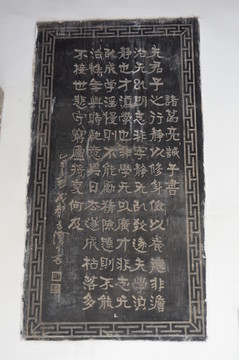 諸葛亮誡子書
夫君子之行靜以修身儉以養德非澹
泊无以明志非寧靜无以致遠夫學須
靜也才須學也非學无以廣才非志无
以成學淫慢則不能勵精險躁則不能
冶性年與時馳意與日去遂成枯落多
不接世悲守窮廬將復何及